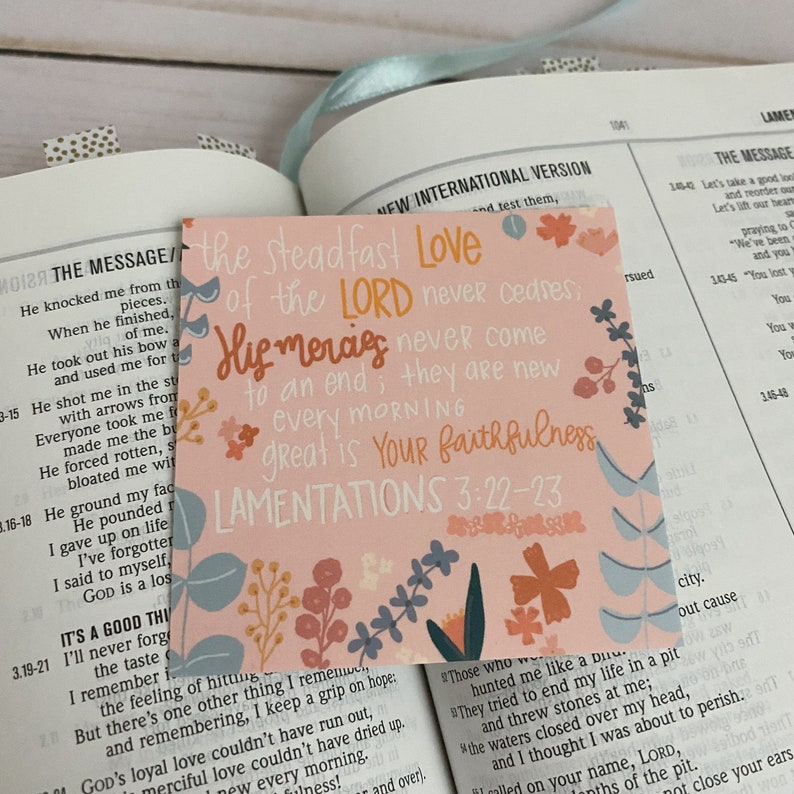 1041
LAMEN
THE MESSAGE/
NEW INTERNATIONAL VERSION
THE MESSAGE
He knocked me from the
pieces.
When he finished,
of me.
He took out his bow a
and used me for ta
3-15 He shot me in the st
with arrows from
Everyone took me fo
made me the bu
He forced rotten, s
bloated me wit
3.16-18 He ground my fac
He pounded m
I gave up on life
I've forgotten
I said to myself,
GOD is a los
IT'S A GOOD THI
3.19-21 I'll never forge
the taste
I remember i
the feeling of hitting
But there's one other thing I remember,
and remembering, I keep a grip on hope:
GOD'S loyal love couldn't have run out,
merciful love couldn't have dried up.
new every morning.
faithfulness!
over and over).
the steadfast LOVE
of the LORD never ceases;
His mercies never come
to an end; they are new
every morning
great is YOUR faithfulness
LAMENTATIONS 3:22-23
and test them,
rsued
ns
city.
out cause
52 Those who w
hunted me like a bird.
53 They tried to end my life in a pit
and threw stones at me;
54 the waters closed over my head,
and I thought I was about to perish.
55 I called on your name, LORD,
depths of the pit.
not close your ears
3.40-42 Let's take a good loo
and reorder our
Let's lift our hear
praying to G
"We've been
and you h
3.43-45 "You lost y
You
You w
You
3.46-48